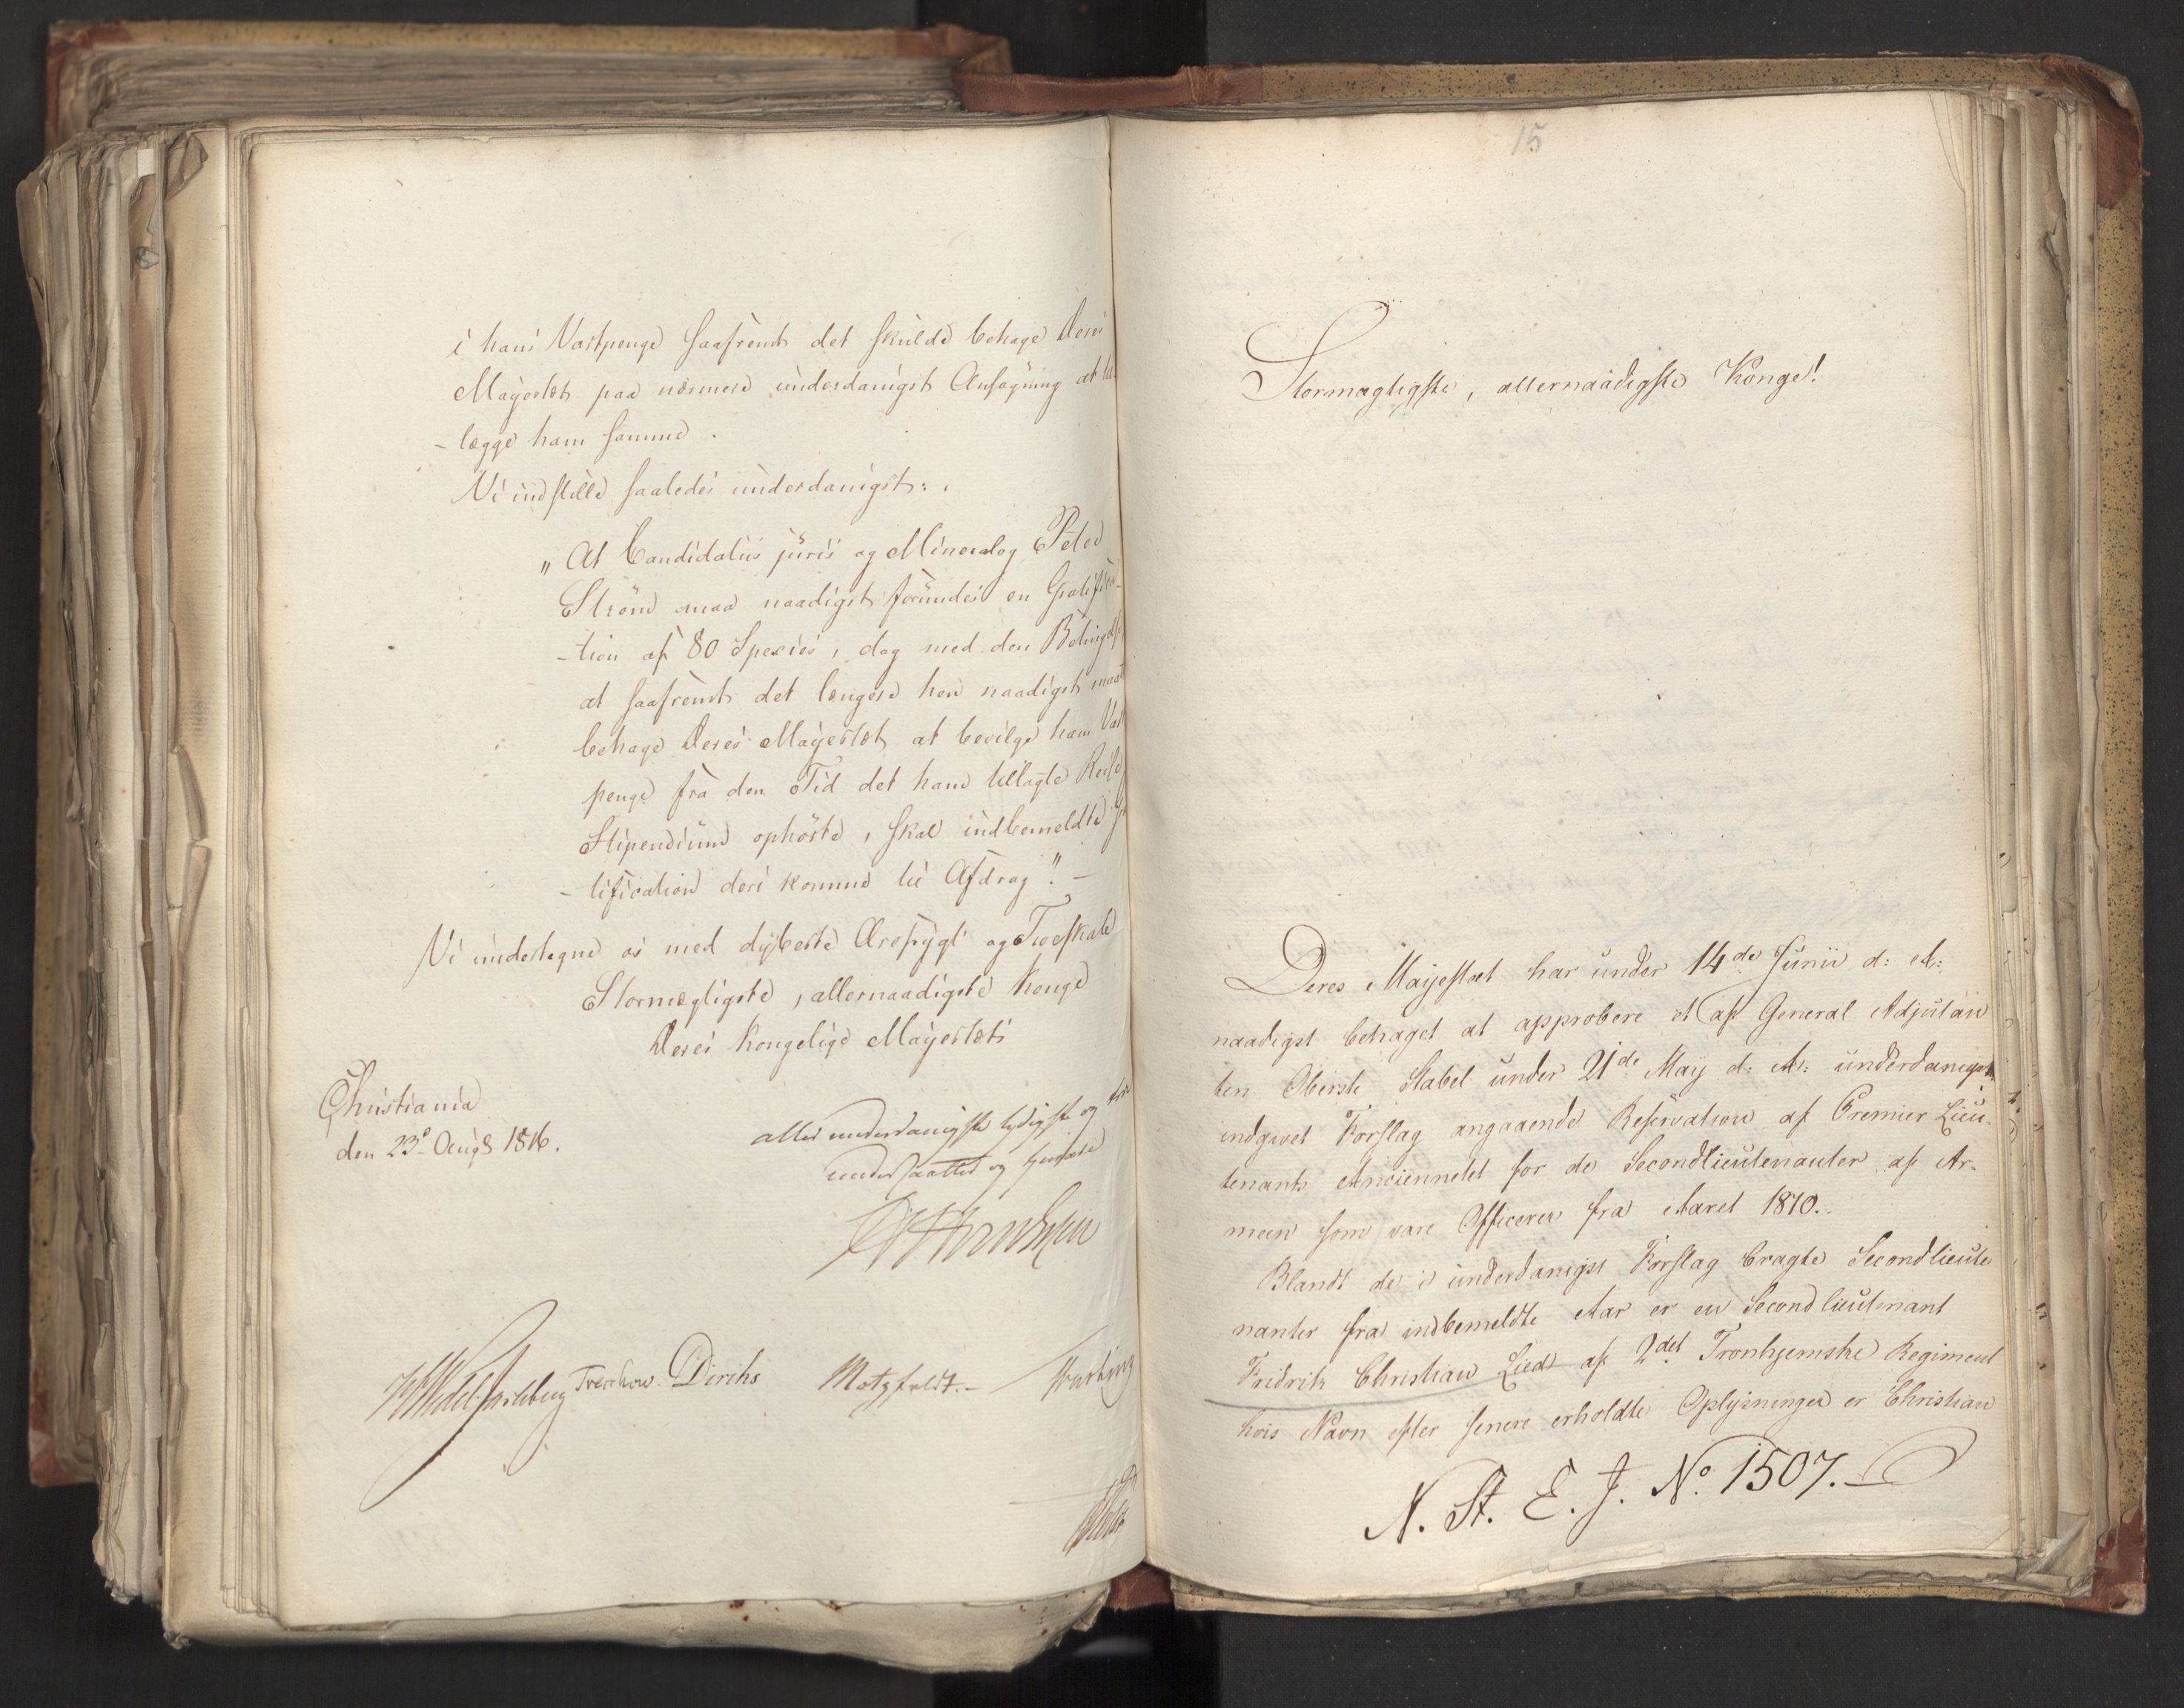 i hans Vartpenge saafremt det skulde behage Deres
Majestæt paa nærmere underdanigst Ansøgning at til-
-lægge ham samme.
Vi indstille saaledes underdanigst:
"At Candidatus juris og Mineralog Peter
Strøm maa naadigst forundes en Gratifica-
-tion af 80 Species, dog med den Betingelse
at saafremt det længere hen naadigst maatte
behage Deres Majestæt at bevilge ham Vart
penge fra den Tid det ham tillagte Reise
Stipendium ophørte, skal indbemeldte Gra
-tification deri komme til Afdrag". -
Vi undertegne os med dybeste Ærefrygt og Troeskab
Stormægtigste, allernaadigste Konge
Deres Kongelige Majestæts
Christiania
den 23de Aug. 1816.
allerunderdanigste lydigste og troe
undersaatter og tjenere
Wedel Jarlsberg Treschow Diriks Motzfeldt.
15
Stormægtigste, allernaadigste Konge!
Deres Majestæt har under 14de Junii d: A:
naadigst behaget at approbere et af General Adjutan
ten Oberste Stabel under 21de May d: A: underdanigst
indgivet Forslag angaaende Reservation af Premier Lieu-
tenants Anciennetet for de Secondlieutenanter af Ar-
meen som vare Officerer fra Aaret 1810.
Blandt de i underdanigst Forslag bragte Secondlieute
nanter fra indbemeldte Aar er en Secondlieutenant
Fridrik Christian Lied af 2det Tronhjemske Regiment
hvis Navn efter senere erholdte Oplysninger er Christian
N. St. E. J. No. 1507.